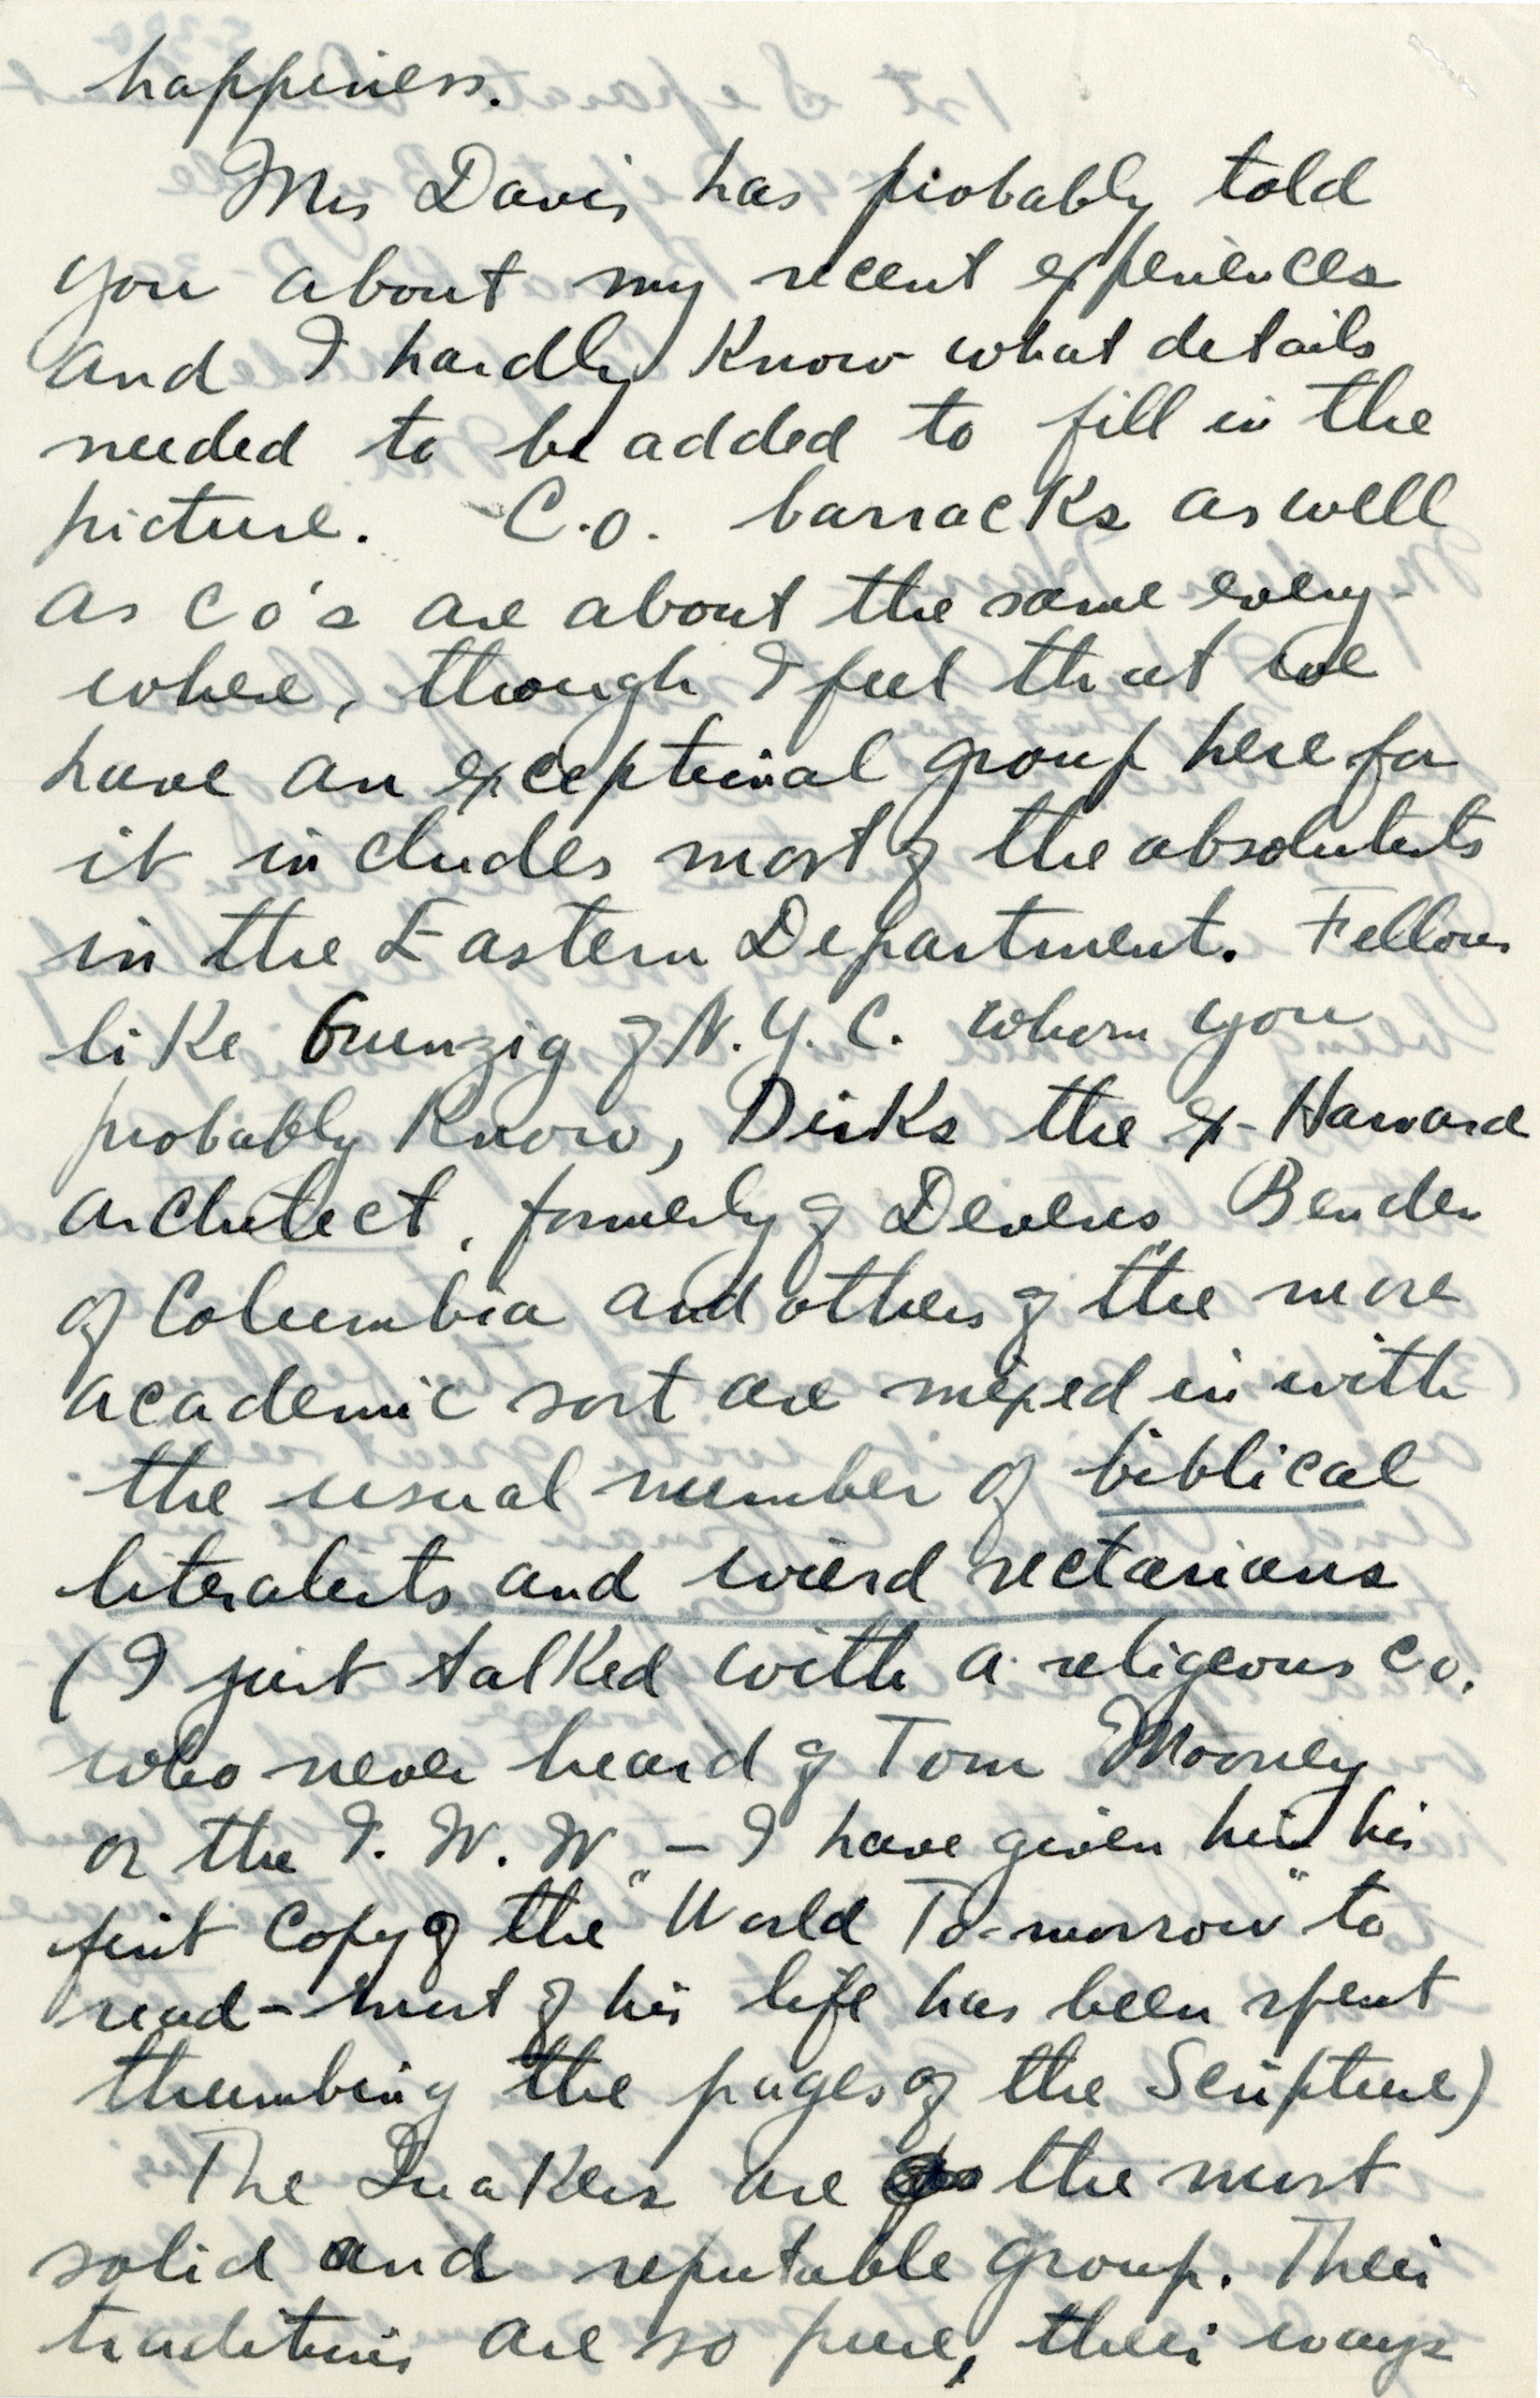 happiness.
Mrs Davis has probably told
you about my recent experiences
and I hardly know what details
needed to be added to fill in the
picture. C.O. barracks as well
as C O's are about the same every-
where, though I feel that we
have an exceptional group here for
it includes most of the absolutists
in the Eastern Department. Fellows
like Gruenzig of N.Y.C. whom you
probably know, Dirks the ex-Harvard
architect, formerly of Devens, Bender
of Columbia and others of "the more
academic sort are mixed in with
the usual number of biblical
literalists and wierd sectarians
(I just talked with a religeous Co.
who never heard of Tom Mooney
or the I. W. W. - I have given him his
first copy of the "World To-morrow" to
read - most of his life has been spent
thumbing the pages of the Scripture)
The Quakers are the most
solid and reputable group. Their
traditions are so pure, their ways